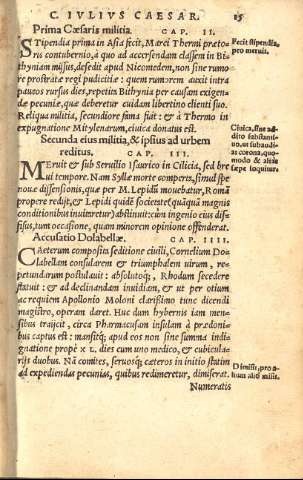 C. IVLIVS CAESAR. 15
Prima Cæsaris militia. CAP. II.
STipendia prima in Asia fecit, Marci Thermi præto-
ris contubernio, à quo ad accersendam classem in Bi-
thyniam missus, desedit apud Nicomedem, non sine rumo-
re prostratæ regi pudicitiæ: quem rumorem auxit intra
paucos rursus dies, repetita Bithynia per causam exigen-
dæ pecuniæ, quæ deberetur cuidam libertino clienti suo.
Reliqua militia, secundiore fama fuit: & à Thermo in
expugnatione Mitylenarum, ciuica donatus est.
Secunda eius militia, & ipsius ad urbem
reditus. CAP. III.
MEruit & sub Seruilio Isaurico in Cilicia, sed bre
ui tempore. Nam Syllæ morte comperta, simul spe
nouæ dissensionis, quæ per M. Lepidū mouebatur, Romā
propere redijt, & Lepidi quidē societate (quāquā magnis
conditionibus inuitaretur) abstinuit: cùm ingenio eius dif-
fisus, tum occasione, quam minorem opinione offenderat.
Accusatio Dolabellæ. CAP. IIII.
CAeterum composita seditione ciuili, Cornelium Do-
labellam consularem & triumphalem uirum, re-
petundarum postulauit: absolutoq;, Rhodum secedere
statuit: & ad declinandam inuidiam, & ut per otium
ac requiem Apollonio Moloni clarissimo tunc dicendi
magistro, operam daret. Huc dum hybernis iam men-
sibus traijcit, circa Pharmacusam insulam à prædoni-
bus captus est: mansitq; apud eos non sine summa indi-
gnatione propè XL. dies cum uno medico, & cubicula-
rijs duobus. Nā comites, seruosq; cæteros in initio statim
ad expediendas pecunias, quibus redimeretur, dimiserat.
Numeratis
Fecit stipendia,
pro meruit.
Ciuica, sine ad-
dito substanti-
uo, ut subaudi-
at corona, quo-
modo & aliàs
sæpe loquitur.
Dimisit, pro a-
lium aliò misit.